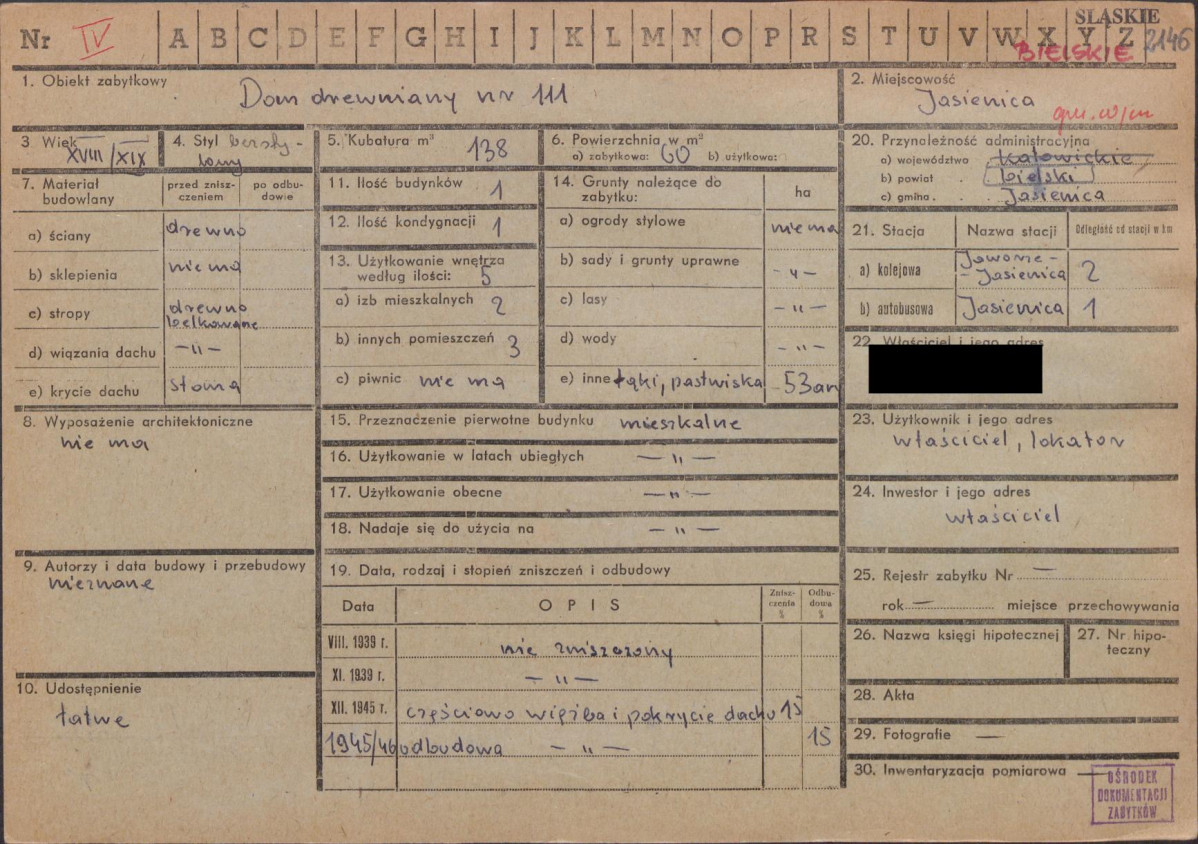 Nr IV A B C D E F G H I J K L M N O P R S T U V W X Y Z
ŚLĄSKIE
BIELSKIE 2146
1. Obiekt zabytkowy
Dom drewniany nr 111
2. Miejscowość
Jasienica
gm. w/m
3 Wiek
XVIII/XIX
4. Styl bezsty-
lowy
5. Kubatura m³ 138
6. Powierzchnia w m²
a) zabytkowa: 60 b) użytkowa:
7. Materiał budowlany
przed znisz-
czeniem
po odbu-
dowie
a) ściany drewno
b) sklepienia nie ma
c) stropy drewno
belkowane
d) wiązania dachu -"-
e) krycie dachu słoma
8. Wyposażenie architektoniczne
nie ma
9. Autorzy i data budowy i przebudowy
nieznane
10. Udostępnienie
łatwe
11. Ilość budynków 1
12. Ilość kondygnacji 1
13. Użytkowanie wnętrza
według ilości: 5
a) izb mieszkalnych 2
b) innych pomieszczeń 3
c) piwnic nie ma
14. Grunty należące do
zabytku: ha
a) ogrody stylowe nie ma
b) sady i grunty uprawne -"-
c) lasy -"-
d) wody -"-
e) inne łąki, pastwiska 53 ar
15. Przeznaczenie pierwotne budynku mieszkalne
16. Użytkowanie w latach ubiegłych -"-
17. Użytkowanie obecne -"-
18. Nadaje się do użycia na -"-
19. Data, rodzaj i stopień zniszczeń i odbudowy
Data OPIS Znisz-
czenia
% Odbu-
dowa
%
VIII. 1939 r. nie zniszczony
XI. 1939 r. -"-
XII. 1945 r. częściowo więźba i pokrycie dachu 15
1945/46 odbudowa -"- 15
20. Przynależność administracyjna
a) województwo katowickie
b) powiat bielski
c) gmina Jasienica
21. Stacja Nazwa stacji Odległość od stacji w km
a) kolejowa Jaworze-
-Jasienica 2
b) autobusowa Jasienica 1
22. Właściciel i jego adres
23. Użytkownik i jego adres
właściciel, lokator
24. Inwestor i jego adres
właściciel
25. Rejestr zabytku Nr —
rok — miejsce przechowywania
26. Nazwa księgi hipotecznej
27. Nr hipo-
teczny
28. Akta
29. Fotografie —
30. Inwentaryzacja pomiarowa —
OŚRODEK
DOKUMENTACJI
ZABYTKÓW